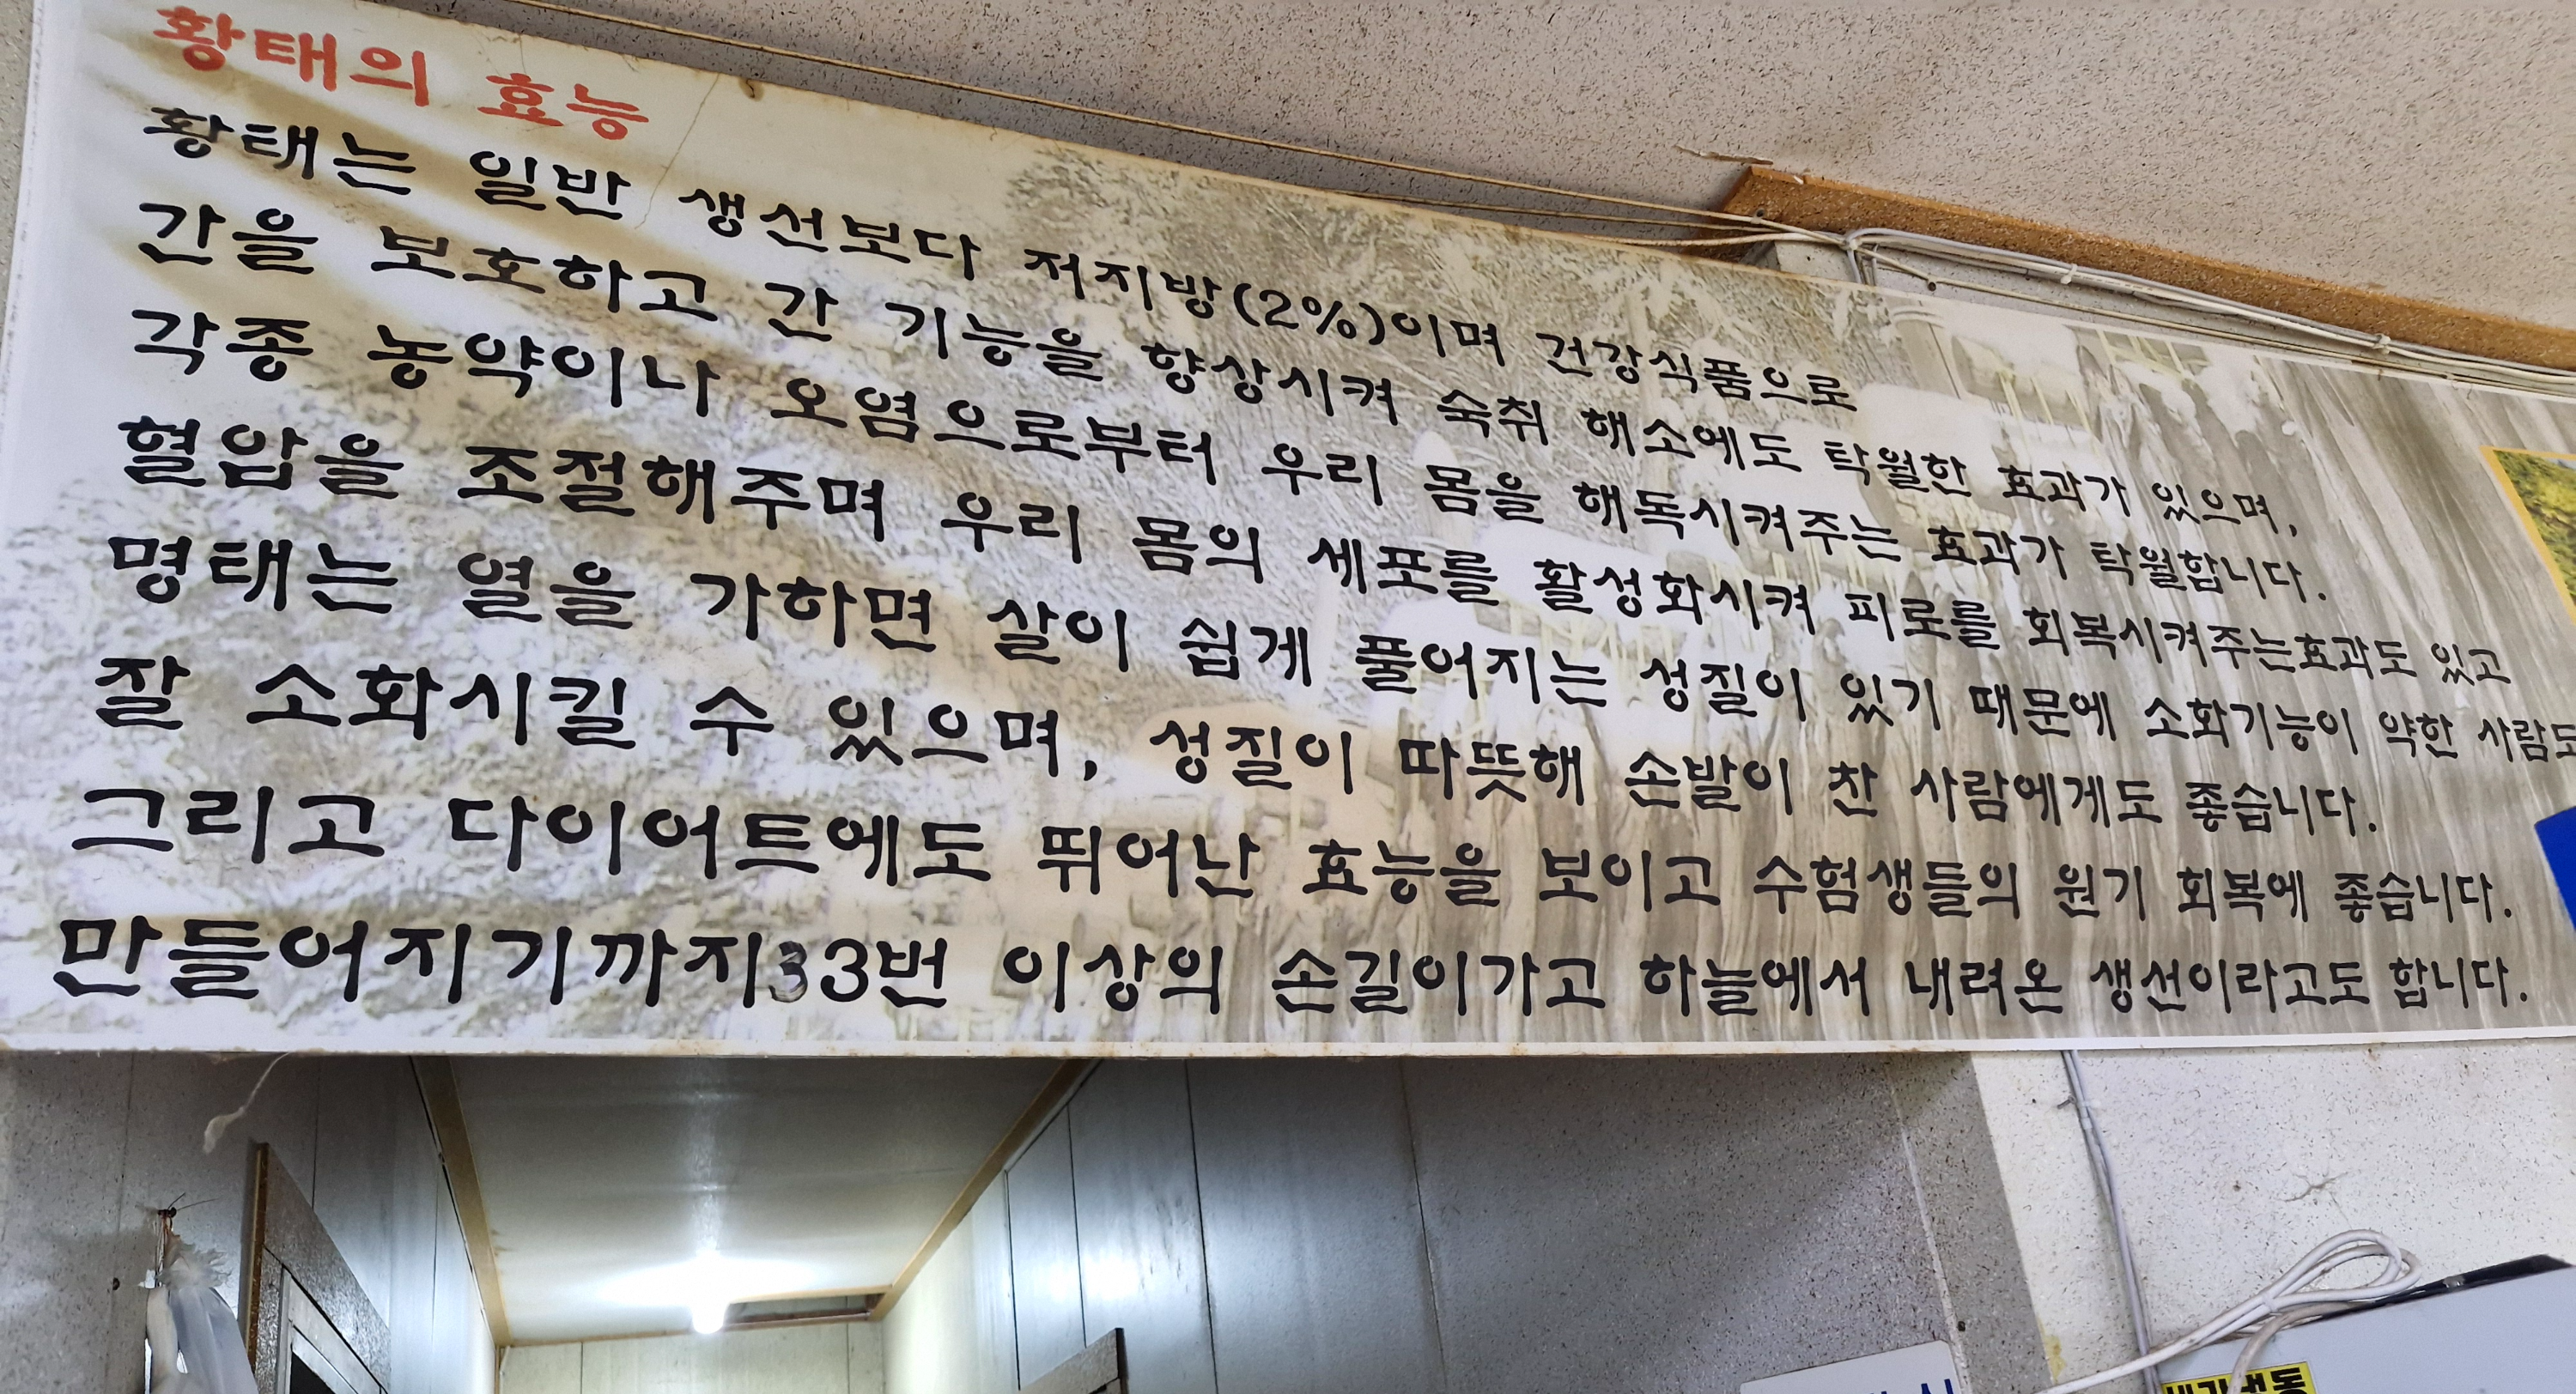 황태의 효능
황태는 일반 생선보다 저지방(2%)이며 건강식품으로
간을 보호하고 간 기능을 향상시켜 숙취 해소에도 탁월한 효과가 있으며,
각종 농약이나 오염으로부터 우리 몸을 해독시켜주는 효과가 탁월합니다.
혈압을 조절해주며 우리 몸의 세포를 활성화시켜 피로를 회복시켜주는효과도 있고
명태는 열을 가하면 살이 쉽게 풀어지는 성질이 있기 때문에 소화기능이 약한 사람도
잘 소화시킬 수 있으며, 성질이 따뜻해 손발이 찬 사람에게도 좋습니다.
그리고 다이어트에도 뛰어난 효능을 보이고 수험생들의 원기 회복에 좋습니다.
만들어지기까지33번 이상의 손길이가고 하늘에서 내려온 생선이라고도 합니다.